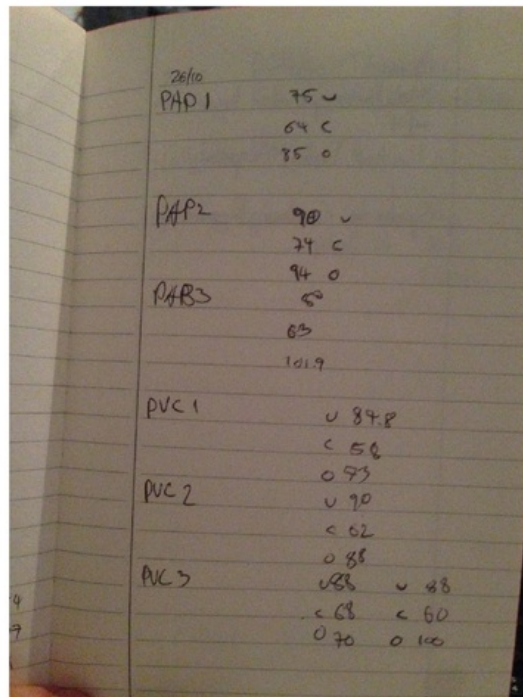 26/10
PAP 1 75 u
64 c
85 o
PAP2 90 u
74 c
94 o
PAP3
63
101.9
PVC 1 u 87.8
c 58
o 73
PVC 2 u 90
c 62
o 88
PVC 3 u 88 u 88
c 68 c 60
o 70 o 100
4
7